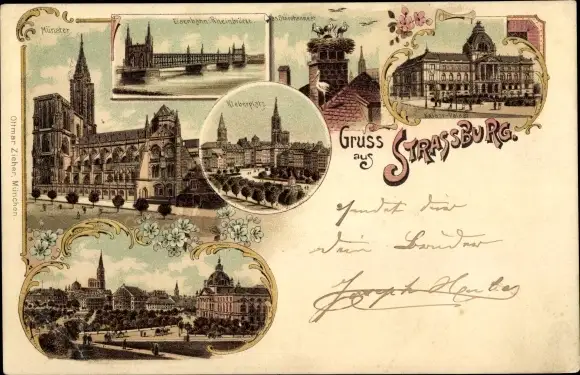 Münster
Eisenbahn-Rheinbrücke
Kleberplatz
Kaiser-Palast
Gruss
aus
STRASSBURG.
Ottmar Zieher, München
sendet dir
dein Bruder
Joseph